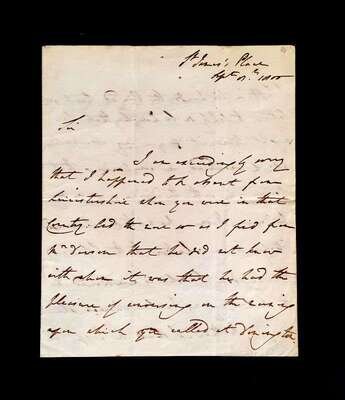 St James's Place
Septr 1800
Sir
I am exceedingly sorry
that I happened to be absent from
Leicestershire when you were in that
County: And the more so as I find from
Mr Dawson that he did not know
with whom it was that he had the
pleasure of conversing on the evening
upon which you called at Donington